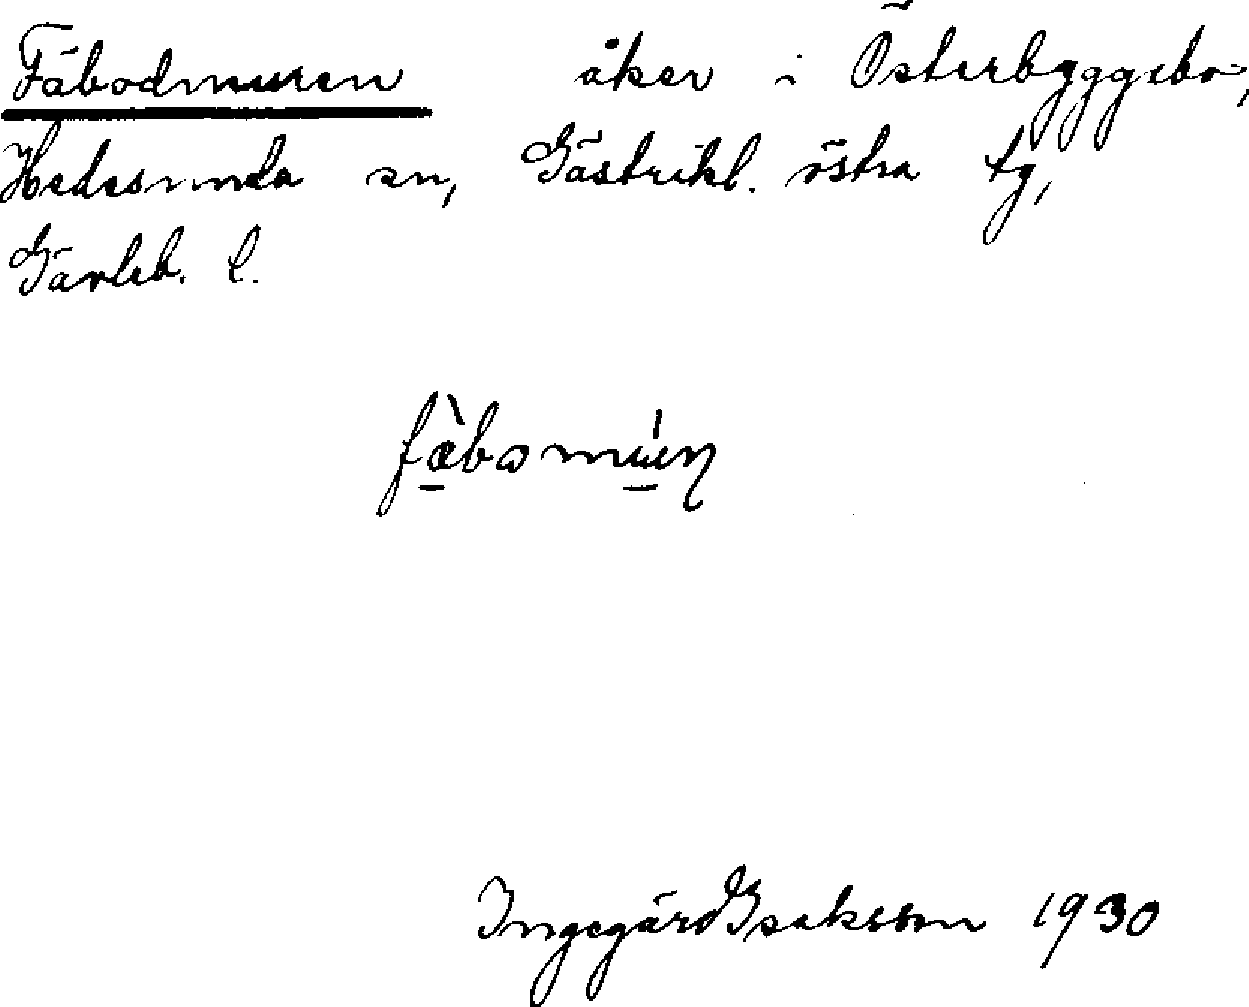 Fäbodmuren åker i Österbyggebo,
Hedesunda sn, Gästrikl. östra tg,
Gävleb. l.
Ingegärd Isaksson 1930